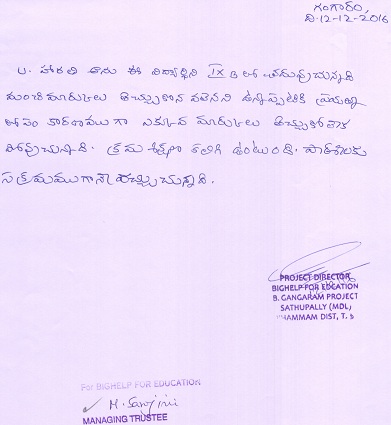 గంగారం,
ది-12-12-2016
U. హారతి అను ఈ విద్యార్థిని IX B లో చదువుచున్నది
మంచి మార్కులు తెచ్చుకోవా లనెనని ఉన్నప్పటికి ప్రయత్న
లోపం కారణముగా ఎక్కువ మార్కులు తెచ్చుకోలేక
పోవుచున్నది. క్రమశిక్షణ కలిగి ఉంటుంది. పాఠశాలకు
సక్రమముగానే వచ్చుచున్నది.
PROJECT DIRECTOR
BIGHELP FOR EDCATION
B. GANGARAM PROJECT
SATHUPALLY (MDL)
KHAMMAM DIST, T.S
For BIGHELP FOR EDUCATION
M. Sarojini
MANAGING TRUSTEE